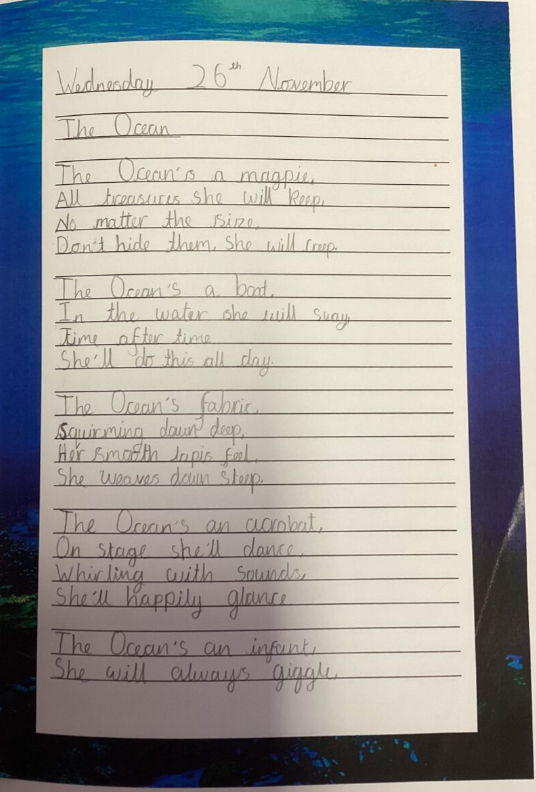 Wednesday 26th November
The Ocean
The Ocean's a magpie,
All treasures she will keep,
No matter the size,
Don't hide them, she will creep.
The Ocean's a boat,
In the water she will sway,
Time after time
She'll do this all day.
The Ocean's fabric,
Squirming down deep,
Her smooth lapis feel,
She weaves down steep.
The Ocean's an acrobat,
On stage she'll dance,
Whirling with sounds,
She'll happily glance.
The Ocean's an infant,
She will always giggle,